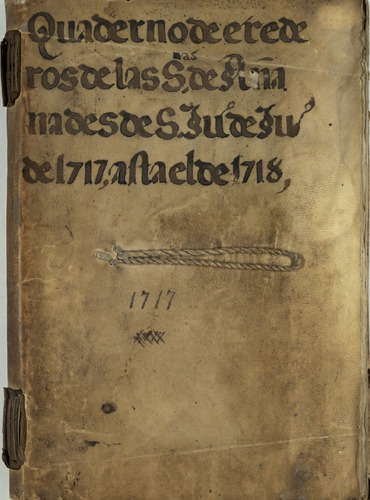 Quaderno de erede
ros de las S.ⁿᵃˢ de Ana
nades de S. Juº de Juº
de 1717, asta el de 1718,
1717